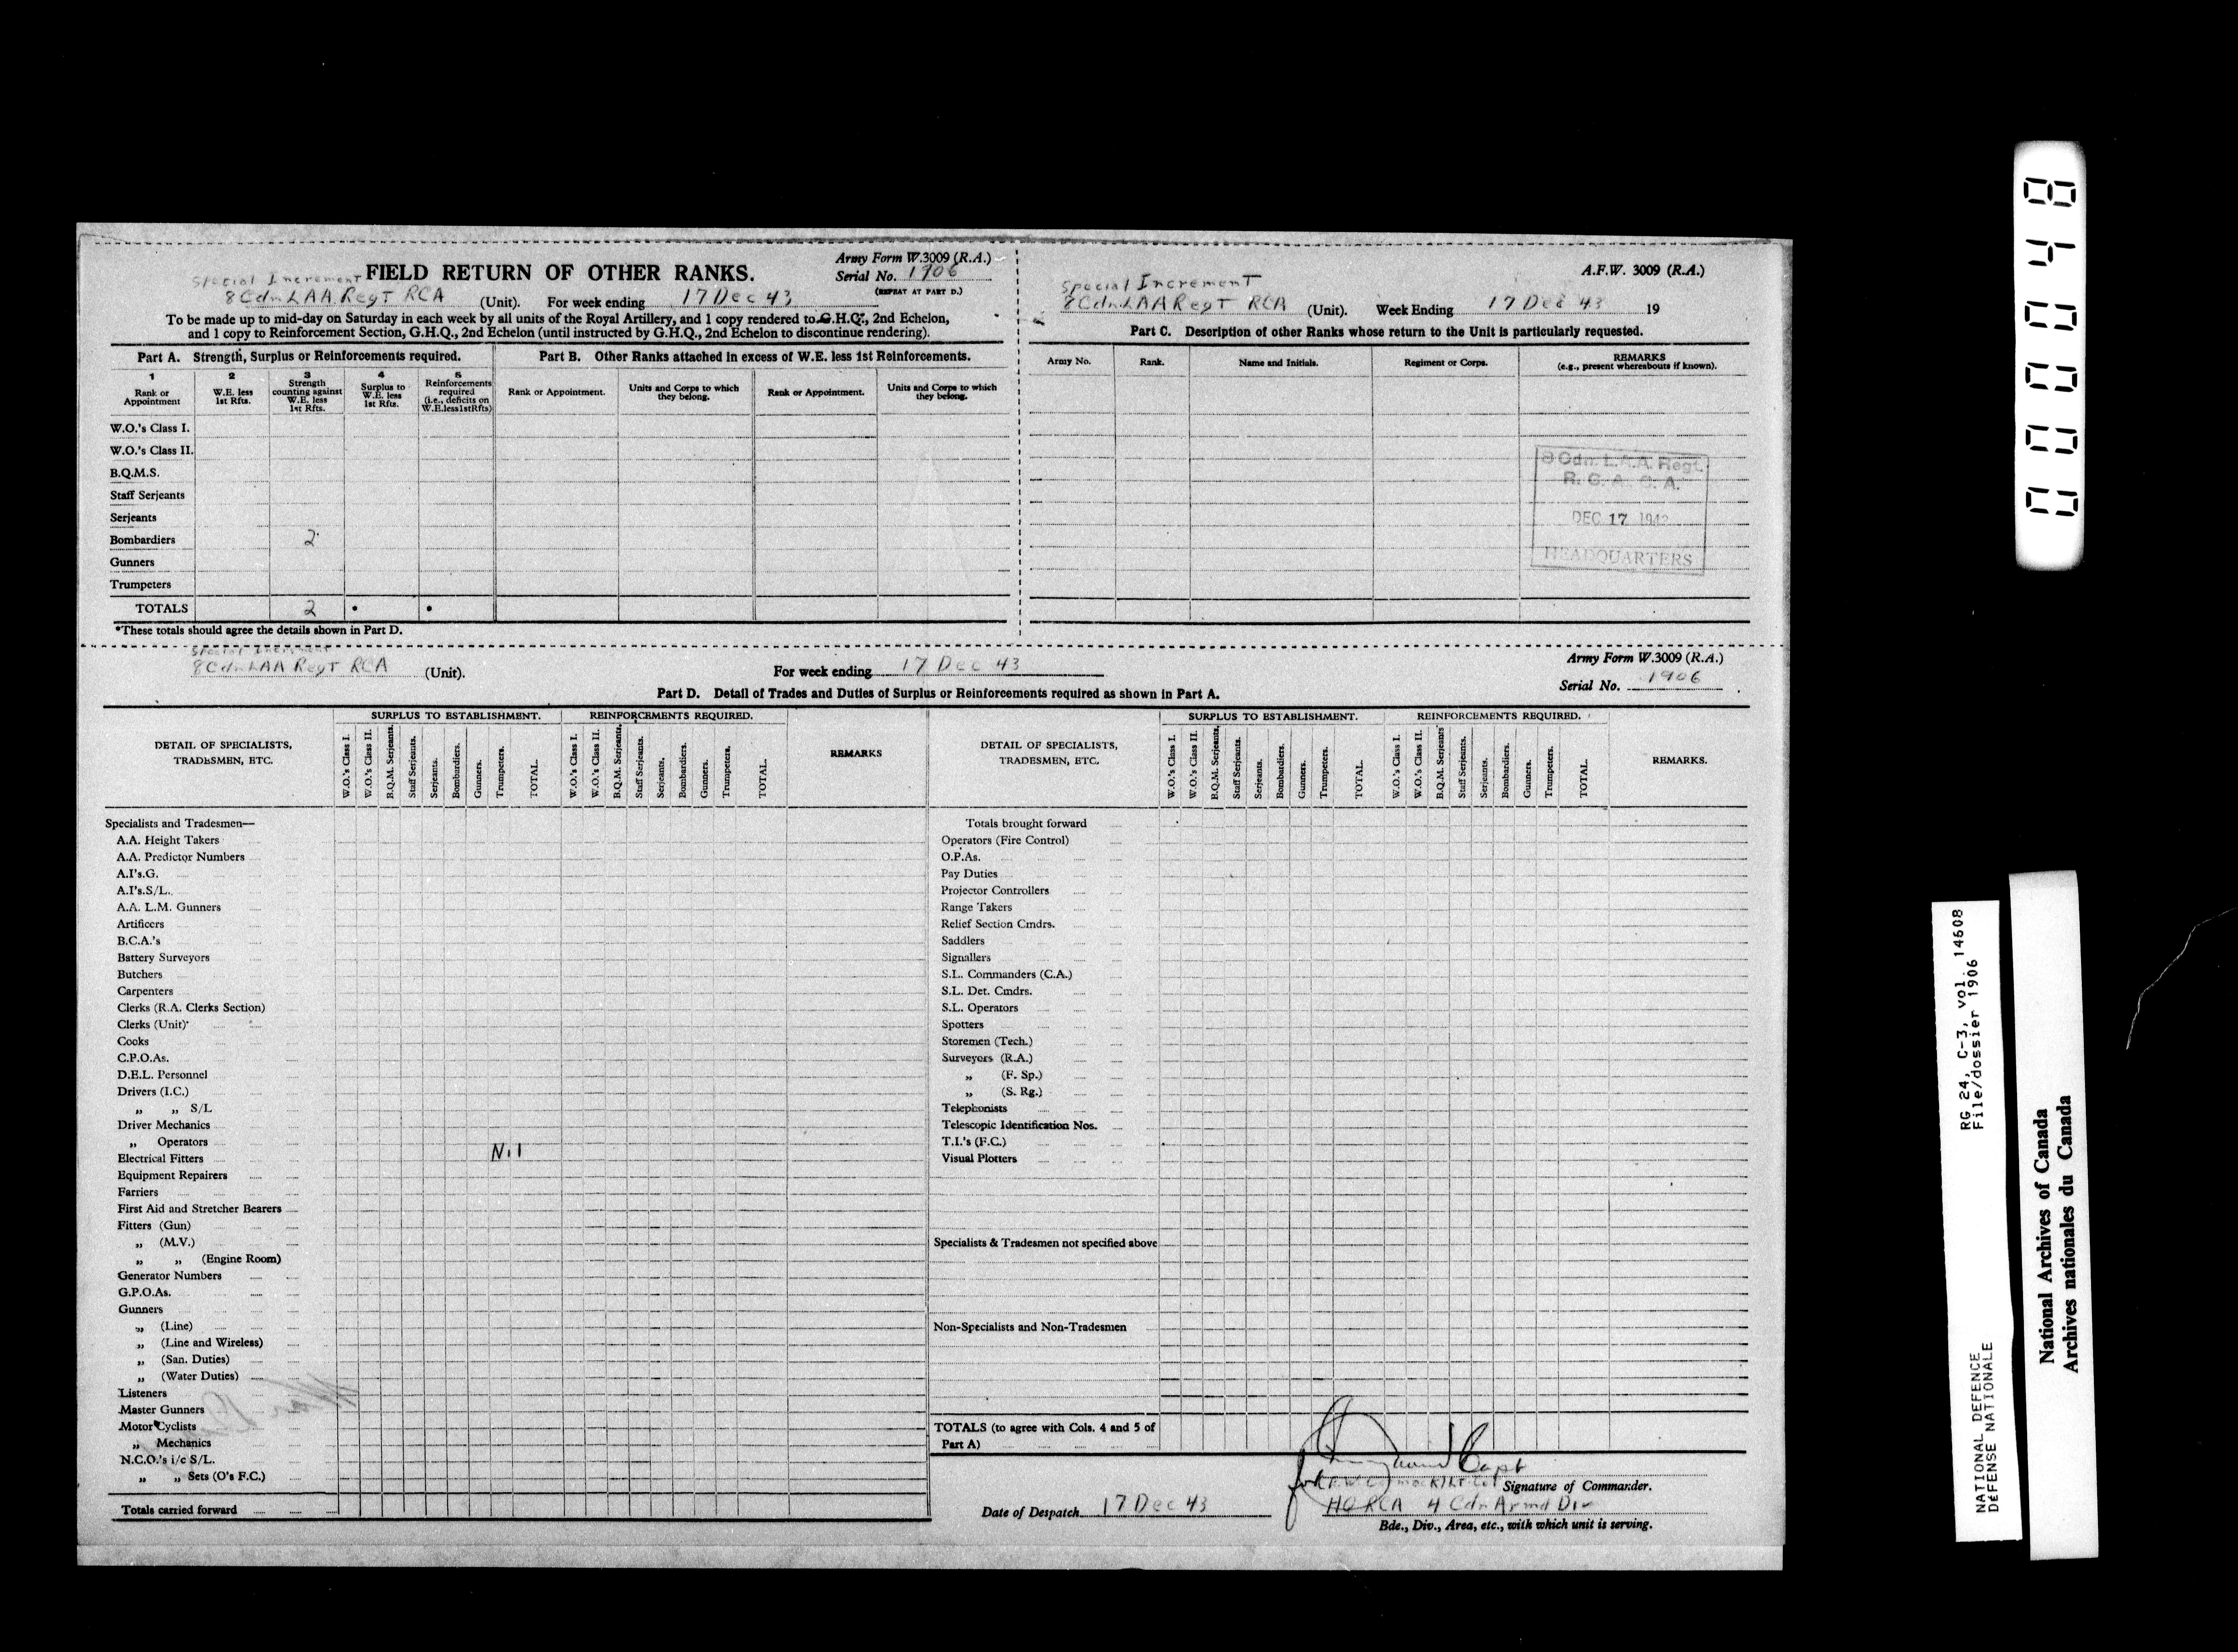 Special Increment
FIELD RETURN OF OTHER RANKS.
Army Form W.3009 (R.A.)
Serial No. 1906
(REPEAT AT PART D.)
8 Cdn LAA Regt RCA (Unit). For week ending 17 Dec 43
To be made up to mid-day on Saturday in each week by all units of the Royal Artillery, and 1 copy rendered to G.H.Q., 2nd Echelon,
and 1 copy to Reinforcement Section, G.H.Q., 2nd Echelon (until instructed by G.H.Q., 2nd Echelon to discontinue rendering).
Part A. Strength, Surplus or Reinforcements required.
Part B. Other Ranks attached in excess of W.E. less 1st Reinforcements.
1 Rank or Appointment
2 W.E. less 1st Rfts.
3 Strength counting against W.E. less 1st Rfts.
4 Surplus to W.E. less 1st Rfts.
5 Reinforcements required (i.e., deficits on W.E.less1stRfts)
Rank or Appointment.
Units and Corps to which they belong.
Rank or Appointment.
Units and Corps to which they belong.
W.O.'s Class I.
W.O.'s Class II.
B.Q.M.S.
Staff Serjeants
Serjeants
Bombardiers 2
Gunners
Trumpeters
TOTALS 2 * *
*These totals should agree the details shown in Part D.
A.F.W. 3009 (R.A.)
Special Increment
8 Cdn LAA Regt RCA (Unit). Week Ending 17 Dec 43 19
Part C. Description of other Ranks whose return to the Unit is particularly requested.
Army No. Rank. Name and Initials. Regiment or Corps. REMARKS
(e.g., present whereabouts if known).
8 Cdn. L.A.A. Regt.
R. C. A. C. A.
DEC 17 1943
HEADQUARTERS
Special Increment
8 Cdn LAA Regt RCA (Unit). For week ending 17 Dec 43
Army Form W.3009 (R.A.)
Serial No. 1906
Part D. Detail of Trades and Duties of Surplus or Reinforcements required as shown in Part A.
DETAIL OF SPECIALISTS, TRADESMEN, ETC.
SURPLUS TO ESTABLISHMENT.
W.O.'s Class I. W.O.'s Class II. B.Q.M. Serjeants. Staff Serjeants. Serjeants. Bombardiers. Gunners. Trumpeters. TOTAL.
REINFORCEMENTS REQUIRED.
W.O.'s Class I. W.O.'s Class II. B.Q.M. Serjeants. Staff Serjeants. Serjeants. Bombardiers. Gunners. Trumpeters. TOTAL.
REMARKS
Specialists and Tradesmen—
A.A. Height Takers
A.A. Predictor Numbers
A.I's.G.
A.I's.S/L.
A.A. L.M. Gunners
Artificers
B.C.A.'s
Battery Surveyors
Butchers
Carpenters
Clerks (R.A. Clerks Section)
Clerks (Unit)
Cooks
C.P.O.As.
D.E.L. Personnel
Drivers (I.C.)
„ „ S/L
Driver Mechanics
„ Operators
Nil
Electrical Fitters
Equipment Repairers
Farriers
First Aid and Stretcher Bearers
Fitters (Gun)
„ (M.V.)
„ „ (Engine Room)
Generator Numbers
G.P.O.As.
Gunners
„ (Line)
„ (Line and Wireless)
„ (San. Duties)
„ (Water Duties)
Listeners
Master Gunners
Motor Cyclists
„ Mechanics
N.C.O.'s i/c S/L.
„ „ Sets (O's F.C.)
Totals carried forward
DETAIL OF SPECIALISTS, TRADESMEN, ETC.
SURPLUS TO ESTABLISHMENT.
W.O.'s Class I. W.O.'s Class II. B.Q.M. Serjeants. Staff Serjeants. Serjeants. Bombardiers. Gunners. Trumpeters. TOTAL.
REINFORCEMENTS REQUIRED.
W.O.'s Class I. W.O.'s Class II. B.Q.M. Serjeants Staff Serjeants. Serjeants. Bombardiers. Gunners. Trumpeters. TOTAL.
REMARKS.
Totals brought forward
Operators (Fire Control)
O.P.As.
Pay Duties
Projector Controllers
Range Takers
Relief Section Cmdrs.
Saddlers
Signallers
S.L. Commanders (C.A.)
S.L. Det. Cmdrs.
S.L. Operators
Spotters
Storemen (Tech.)
Surveyors (R.A.)
„ (F. Sp.)
„ (S. Rg.)
Telephonists
Telescopic Identification Nos.
T.I.'s (F.C.)
Visual Plotters
Specialists & Tradesmen not specified above
Non-Specialists and Non-Tradesmen
TOTALS (to agree with Cols. 4 and 5 of
Part A)
Capt
for Lt Col Signature of Commander.
Date of Despatch 17 Dec 43
HQ RCA 4 Cdn Armd Div
Bde., Div., Area, etc., with which unit is serving.
000048
RG 24, C-3, vol. 14608
File/dossier 1906
NATIONAL DEFENCE
DÉFENSE NATIONALE
National Archives of Canada
Archives nationales du Canada